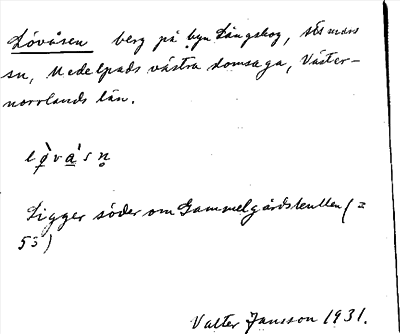 Lövåsen berg på byn Långskog, Stöde
sn, Medelpads västra domsaga, Väster-
norrlands län.
l ø̀ v a ́ s n̥
Ligger söder om Gammelgårdskullen (=
53)
Valter Jansson 1931.